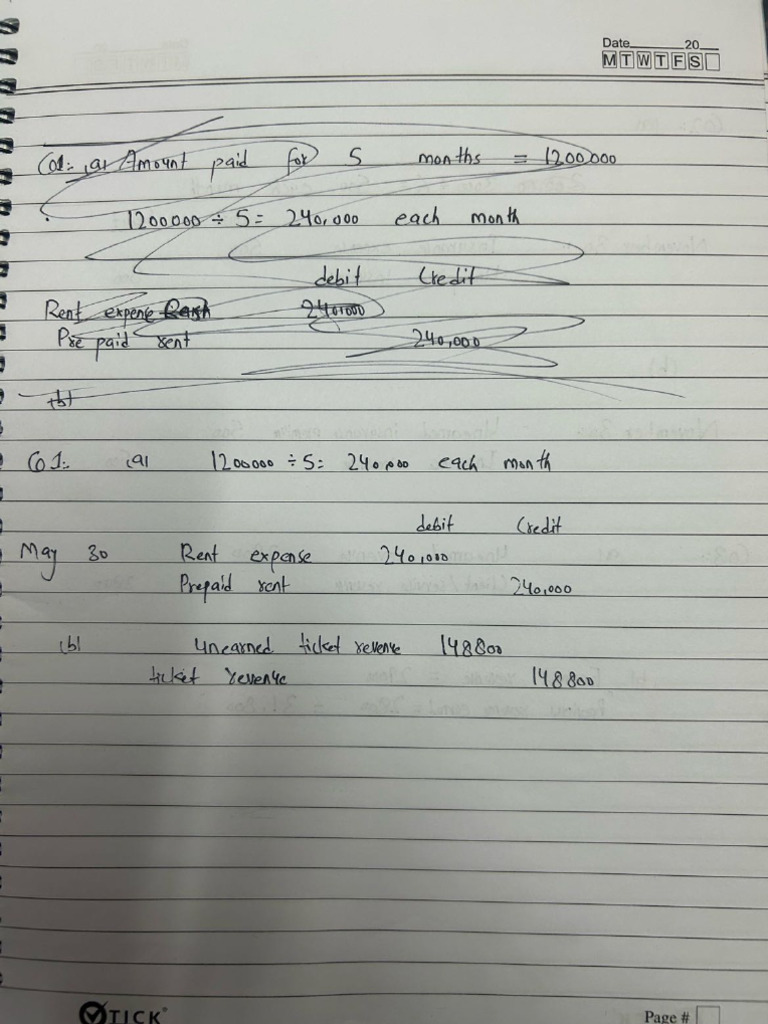 Date______20__
M T W T F S
Q1: (a) Amount paid for 5 months = 1200000
1200000 ÷ 5 = 240,000 each month
debit Credit
Rent expense Cash 240,000
Pre paid rent 240,000
(b)
Q1: (a) 1200000 ÷ 5 = 240,000 each month
debit Credit
May 30 Rent expense 240,000
Prepaid rent 240,000
(b) Unearned ticket revenue 148800
ticket revenue 148800
TICK
Page #